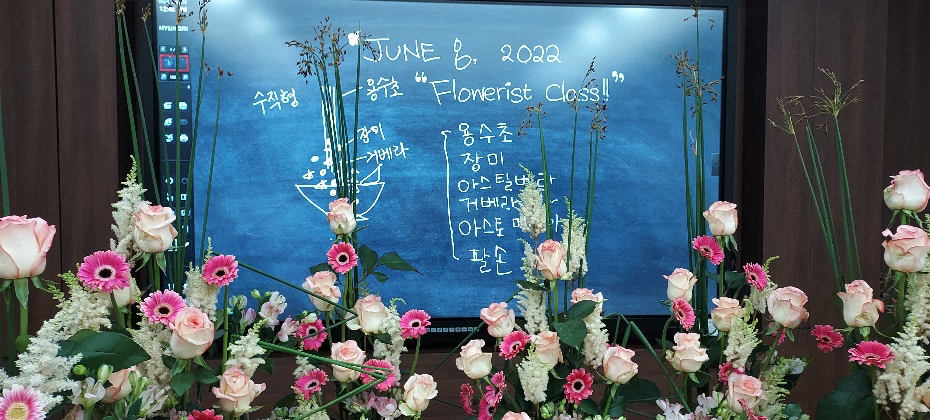 HYUNDAI
JUNE 8, 2022
"Flowerist Class!!"
수직형
용수초
장미
거베라
용수초
장미
아스틸베
거베라
아스토
팔손